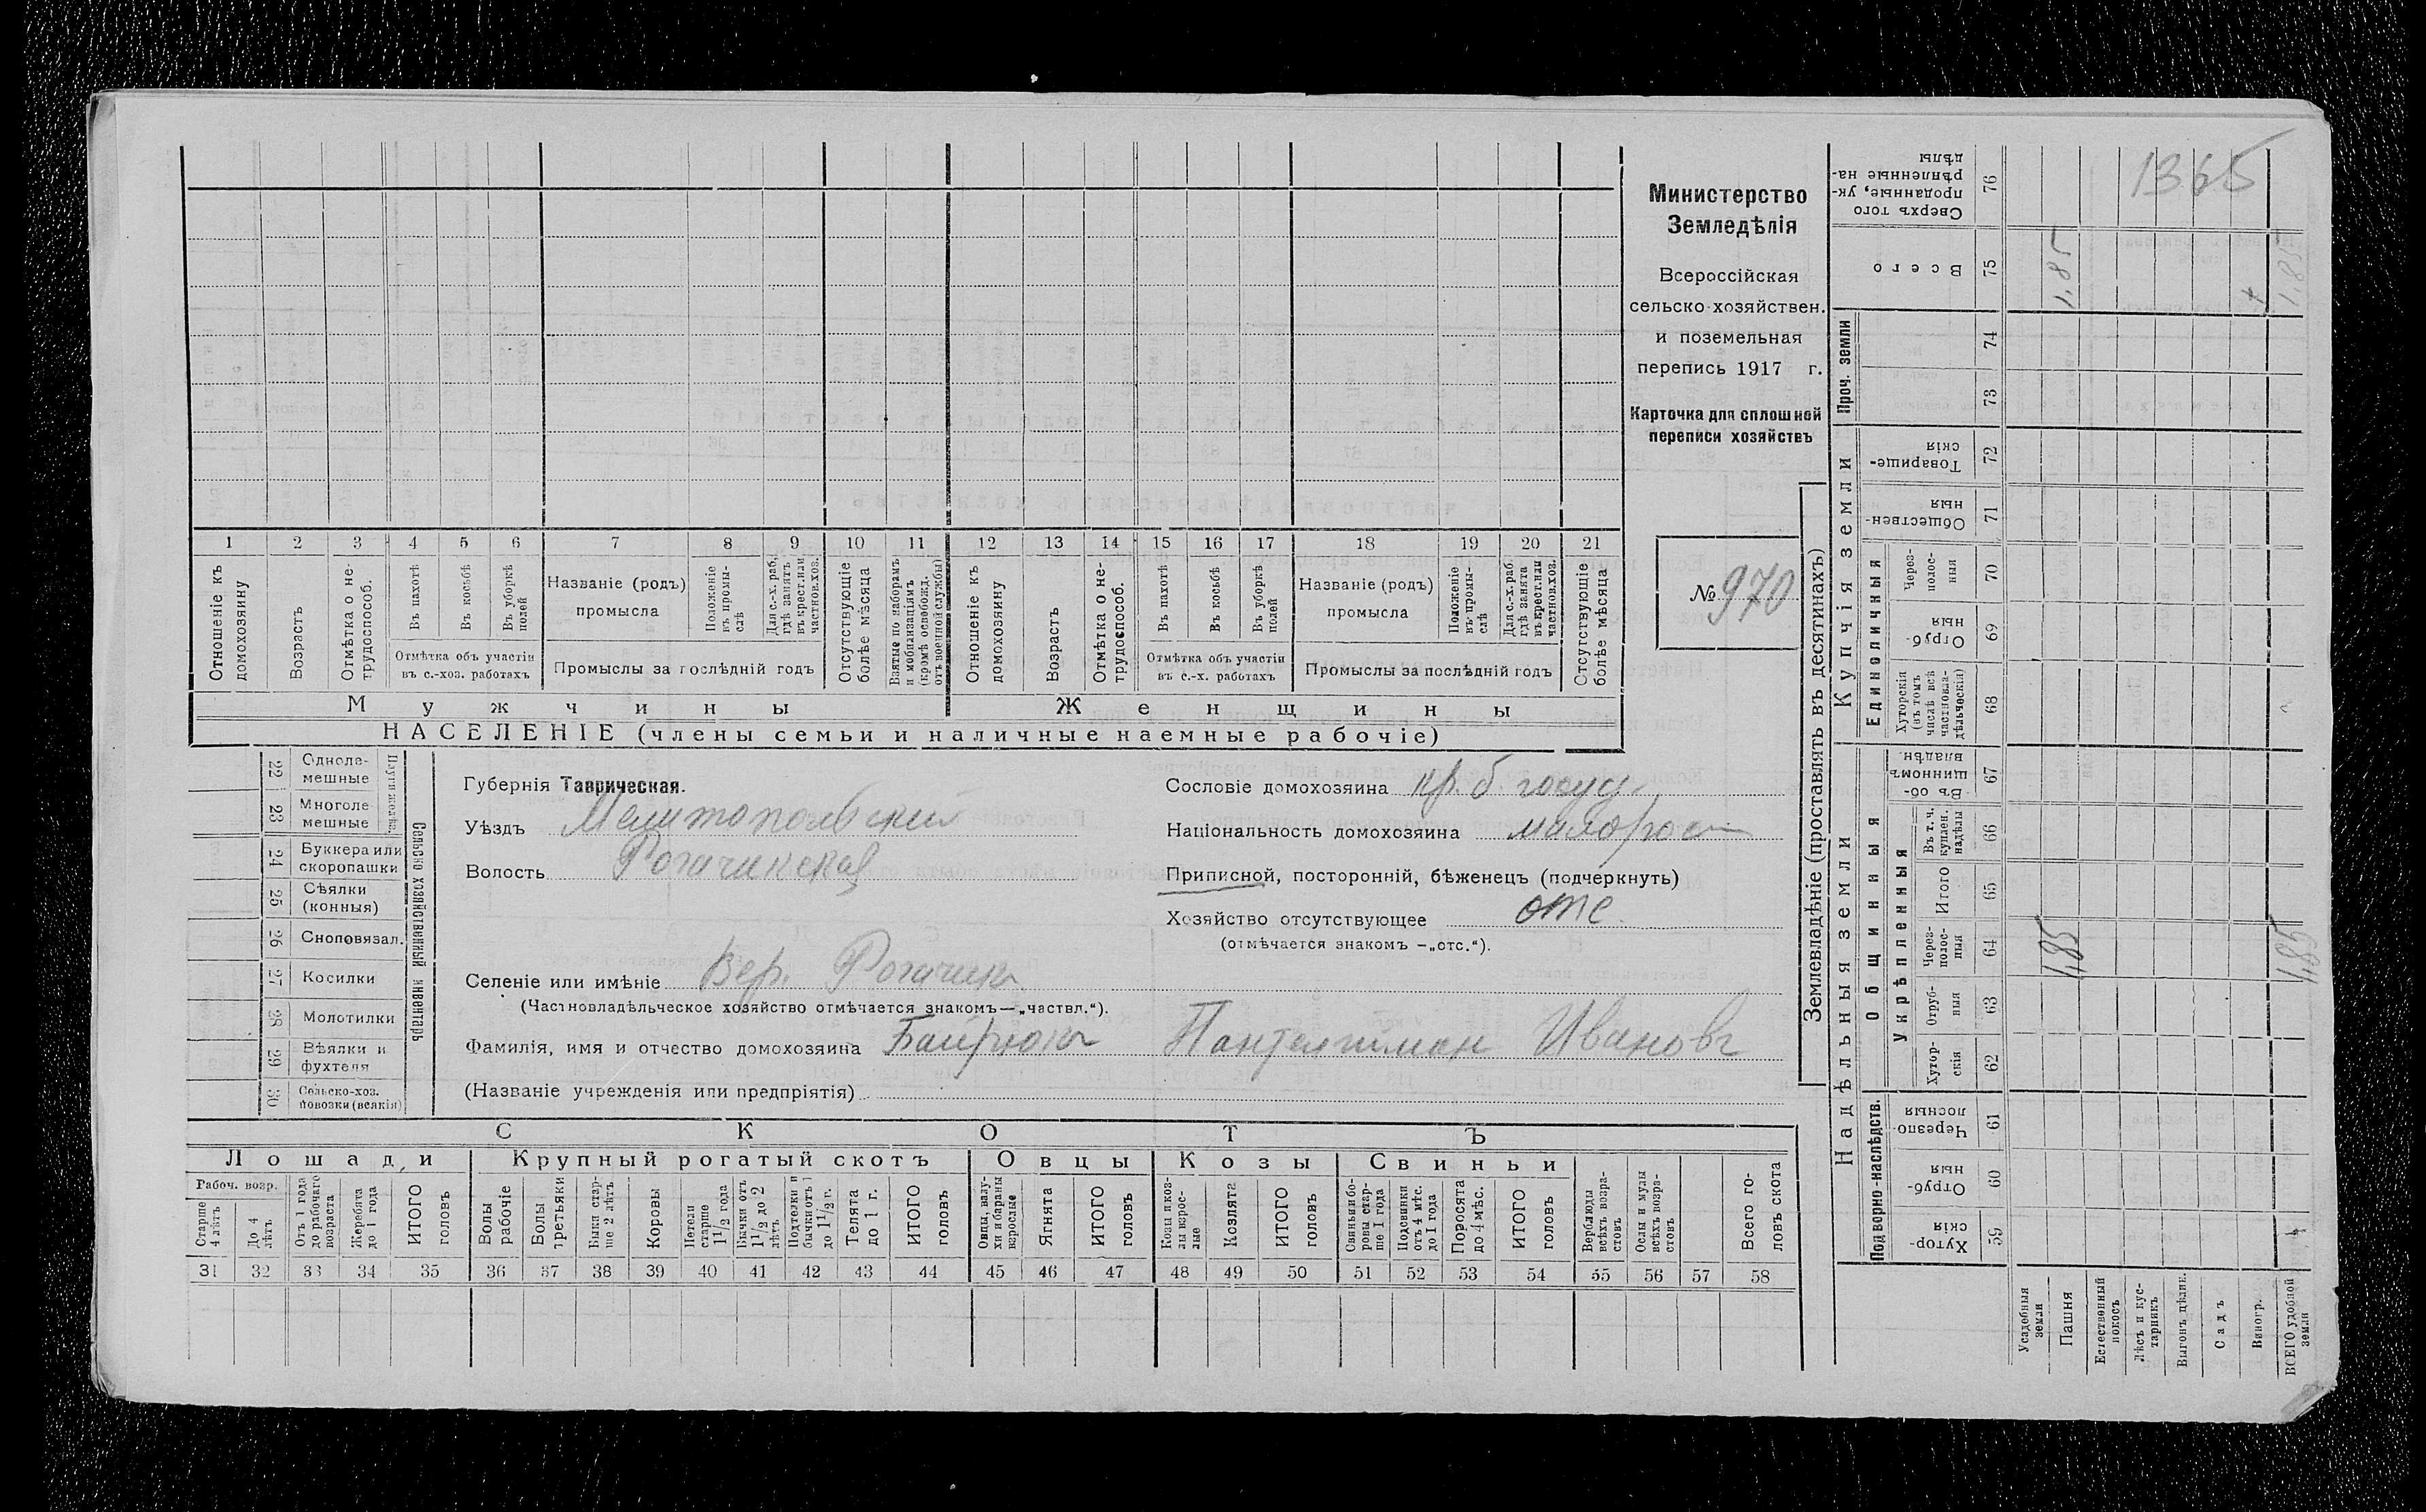 Министерство
Земледѣлія
Всероссійская
сельско-хозяйствен.
и поземельная
перепись 1917 г.
Карточка для сплошной
переписи хозяйствъ
№ 970
1365
1 2 3 4 5 6 7 8 9 10 11 12 13 14 15 16 17 18 19 20 21
Отношеніе къ домохозяину
Возрастъ
Отмѣтка о не-трудоспособ.
Въ пахотѣ
Въ косьбѣ
Въ уборкѣ полей
Отмѣтка объ участіи
въ с.-хоз. работахъ
Названіе (родъ)
промысла
Положеніе въ промы-слѣ
Для с.-х. раб. гдѣ занятъ въ крест. или частнов. хоз.
Промыслы за послѣдній годъ
Отсутствующіе болѣе мѣсяца
Взятые по наборамъ и мобилизаціямъ (кромѣ освобожд. отъ военной службы)
Отношеніе къ домохозяину
Возрастъ
Отмѣтка о не-трудоспособ.
Въ пахотѣ
Въ косьбѣ
Въ уборкѣ полей
Отмѣтка объ участіи
въ с.-х. работахъ
Названіе (родъ)
промысла
Положеніе въ промы-слѣ
Для с.-х. раб. гдѣ занята въ крест. или частнов. хоз.
Промыслы за послѣдній годъ
Отсутствующіе болѣе мѣсяца
Мужчины
Женщины
НАСЕЛЕНІЕ (члены семьи и наличные наемные рабочіе)
22 Одноле-мешные
23 Многоле-мешные
24 Буккера или скоропашки
25 Сѣялки (конныя)
26 Сноповязал.
27 Косилки
28 Молотилки
29 Вѣялки и фухтеля
30 Сельско-хоз. повозки (всякія)
Сельско хозяйственный инвентарь
Губернія Таврическая.
Уѣздъ Мелитопольский
Волость Рогачикская
Селеніе или имѣніе Вер. Рогачикъ
(Частновладѣльческое хозяйство отмѣчается знакомъ—„частвл.“).
Фамилія, имя и отчество домохозяина Байрюкъ Пантелеймон Ивановъ
(Названіе учрежденія или предпріятія)
Сословіе домохозяина кр. б. госуд.
Національность домохозяина малорос
Приписной, посторонній, бѣженецъ (подчеркнуть)
Хозяйство отсутствующее отс.
(отмѣчается знакомъ —„отс.“).
СКОТЪ
Лошади
Крупный рогатый скотъ
Овцы
Козы
Свиньи
Рабоч. возр.
Старше 4 лѣтъ
До 4 лѣтъ
Отъ 1 года до рабочаго возраста
Жеребята до 1 года
ИТОГО головъ
Волы рабочіе
Волы третьяки
Быки стар-ше 2 лѣтъ
Коровы
Нетели старше 1 1/2 года
Бычки отъ 1 1/2 до 2 лѣтъ
Подтелки и бычки отъ 1 до 1 1/2 г.
Телята до 1 г.
ИТОГО головъ
Овцы, валу-хи и бараны взрослые
Ягнята
ИТОГО головъ
Козы и коз-лы взрос-лые
Козлята
ИТОГО головъ
Свиньи и бо-ровы стар-ше 1 года
Подсвинки отъ 4 мѣс. до 1 года
Поросята до 4 мѣс.
ИТОГО головъ
Верблюды всѣхъ возра-стовъ
Ослы и мулы всѣхъ возра-стовъ
Всего го-ловъ скота
31 32 33 34 35 36 37 38 39 40 41 42 43 44 45 46 47 48 49 50 51 52 53 54 55 56 57 58
Землевладѣніе (проставлять въ десятинахъ)
Надѣльныя земли
Купчія земли
Проч. земли
Подворно-наслѣдств.
Общинныя
Укрѣпленныя
Единоличныя
Сверхъ того проданные, ук-рѣпленные на-дѣлы 76
Всего 75 1,85 1,85
74
73
Товарище-скія 72
Обществен-ныя 71
Через-полос-ныя 70
Отруб-ныя 69
Хуторскія (въ томъ числѣ всѣ частновла-дѣльческія) 68
Въ об-щинномъ владѣн. 67
Въ т. ч. куплен. надѣлы 66
Итого 65
Через-полос-ныя 64 1,85 1,85
Отруб-ныя 63
Хутор-скія 62
Черезпо-лосныя 61
Отруб-ныя 60
Хутор-скія 59
Усадебныя земли
Пашня
Естественный покосъ
Лѣсъ и кус-тарникъ
Выгонъ цѣлик.
Садъ
Виногр.
ВСЕГО удобной земли